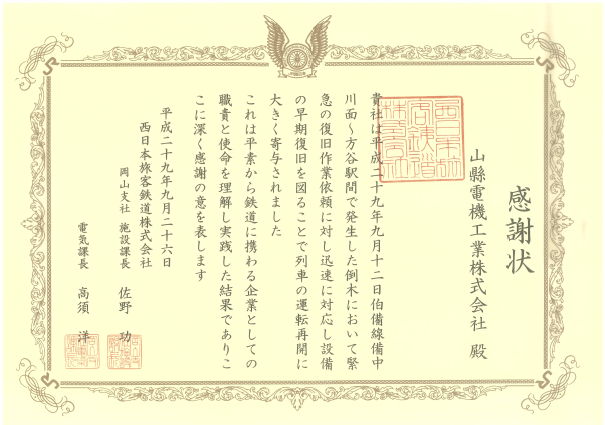 感謝状
山縣電機工業株式会社 殿
貴社は平成二十九年九月十二日伯備線備中
川面~方谷駅間で発生した倒木において緊
急の復旧作業依頼に対し迅速に対応し設備
の早期復旧を図ることで列車の運転再開に
大きく寄与されました
これは平素から鉄道に携わる企業としての
職責と使命を理解し実践した結果でありこ
こに深く感謝の意を表します
平成二十九年九月二十六日
西日本旅客鉄道株式会社
岡山支社 施設課長 佐野 功
電気課長 高須 洋